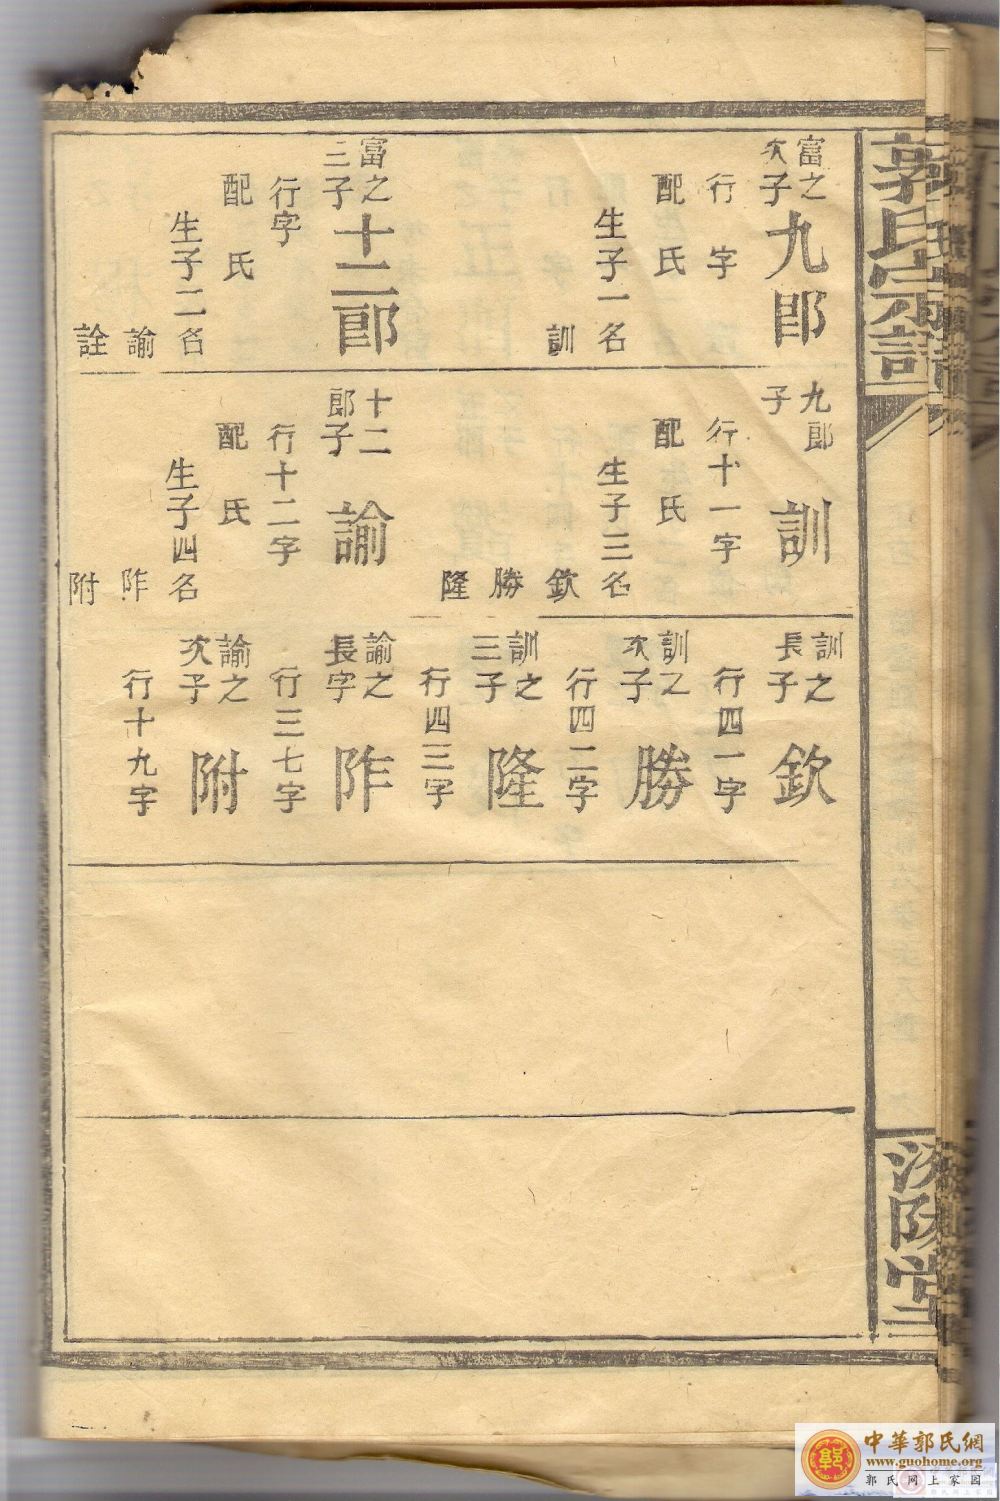 郭氏宗譜
富之
次子
九郎
行字
配氏
生子一名
訓
富之
三子
十二郎
行字
配氏
生子二名
諭
詮
九郎
子
訓
行十一字
配氏
生子三名
欽
勝
隆
十二
郎子
諭
行十二字
配氏
生子四名
阼
附
訓之
長子
欽
行四一字
訓之
次子
勝
行四二字
訓之
三子
隆
行四三字
諭之
長字
阼
行三七字
諭之
次子
附
行十九字
汾陽堂
中華郭氏網
www.guohome.org
郭氏网上家园